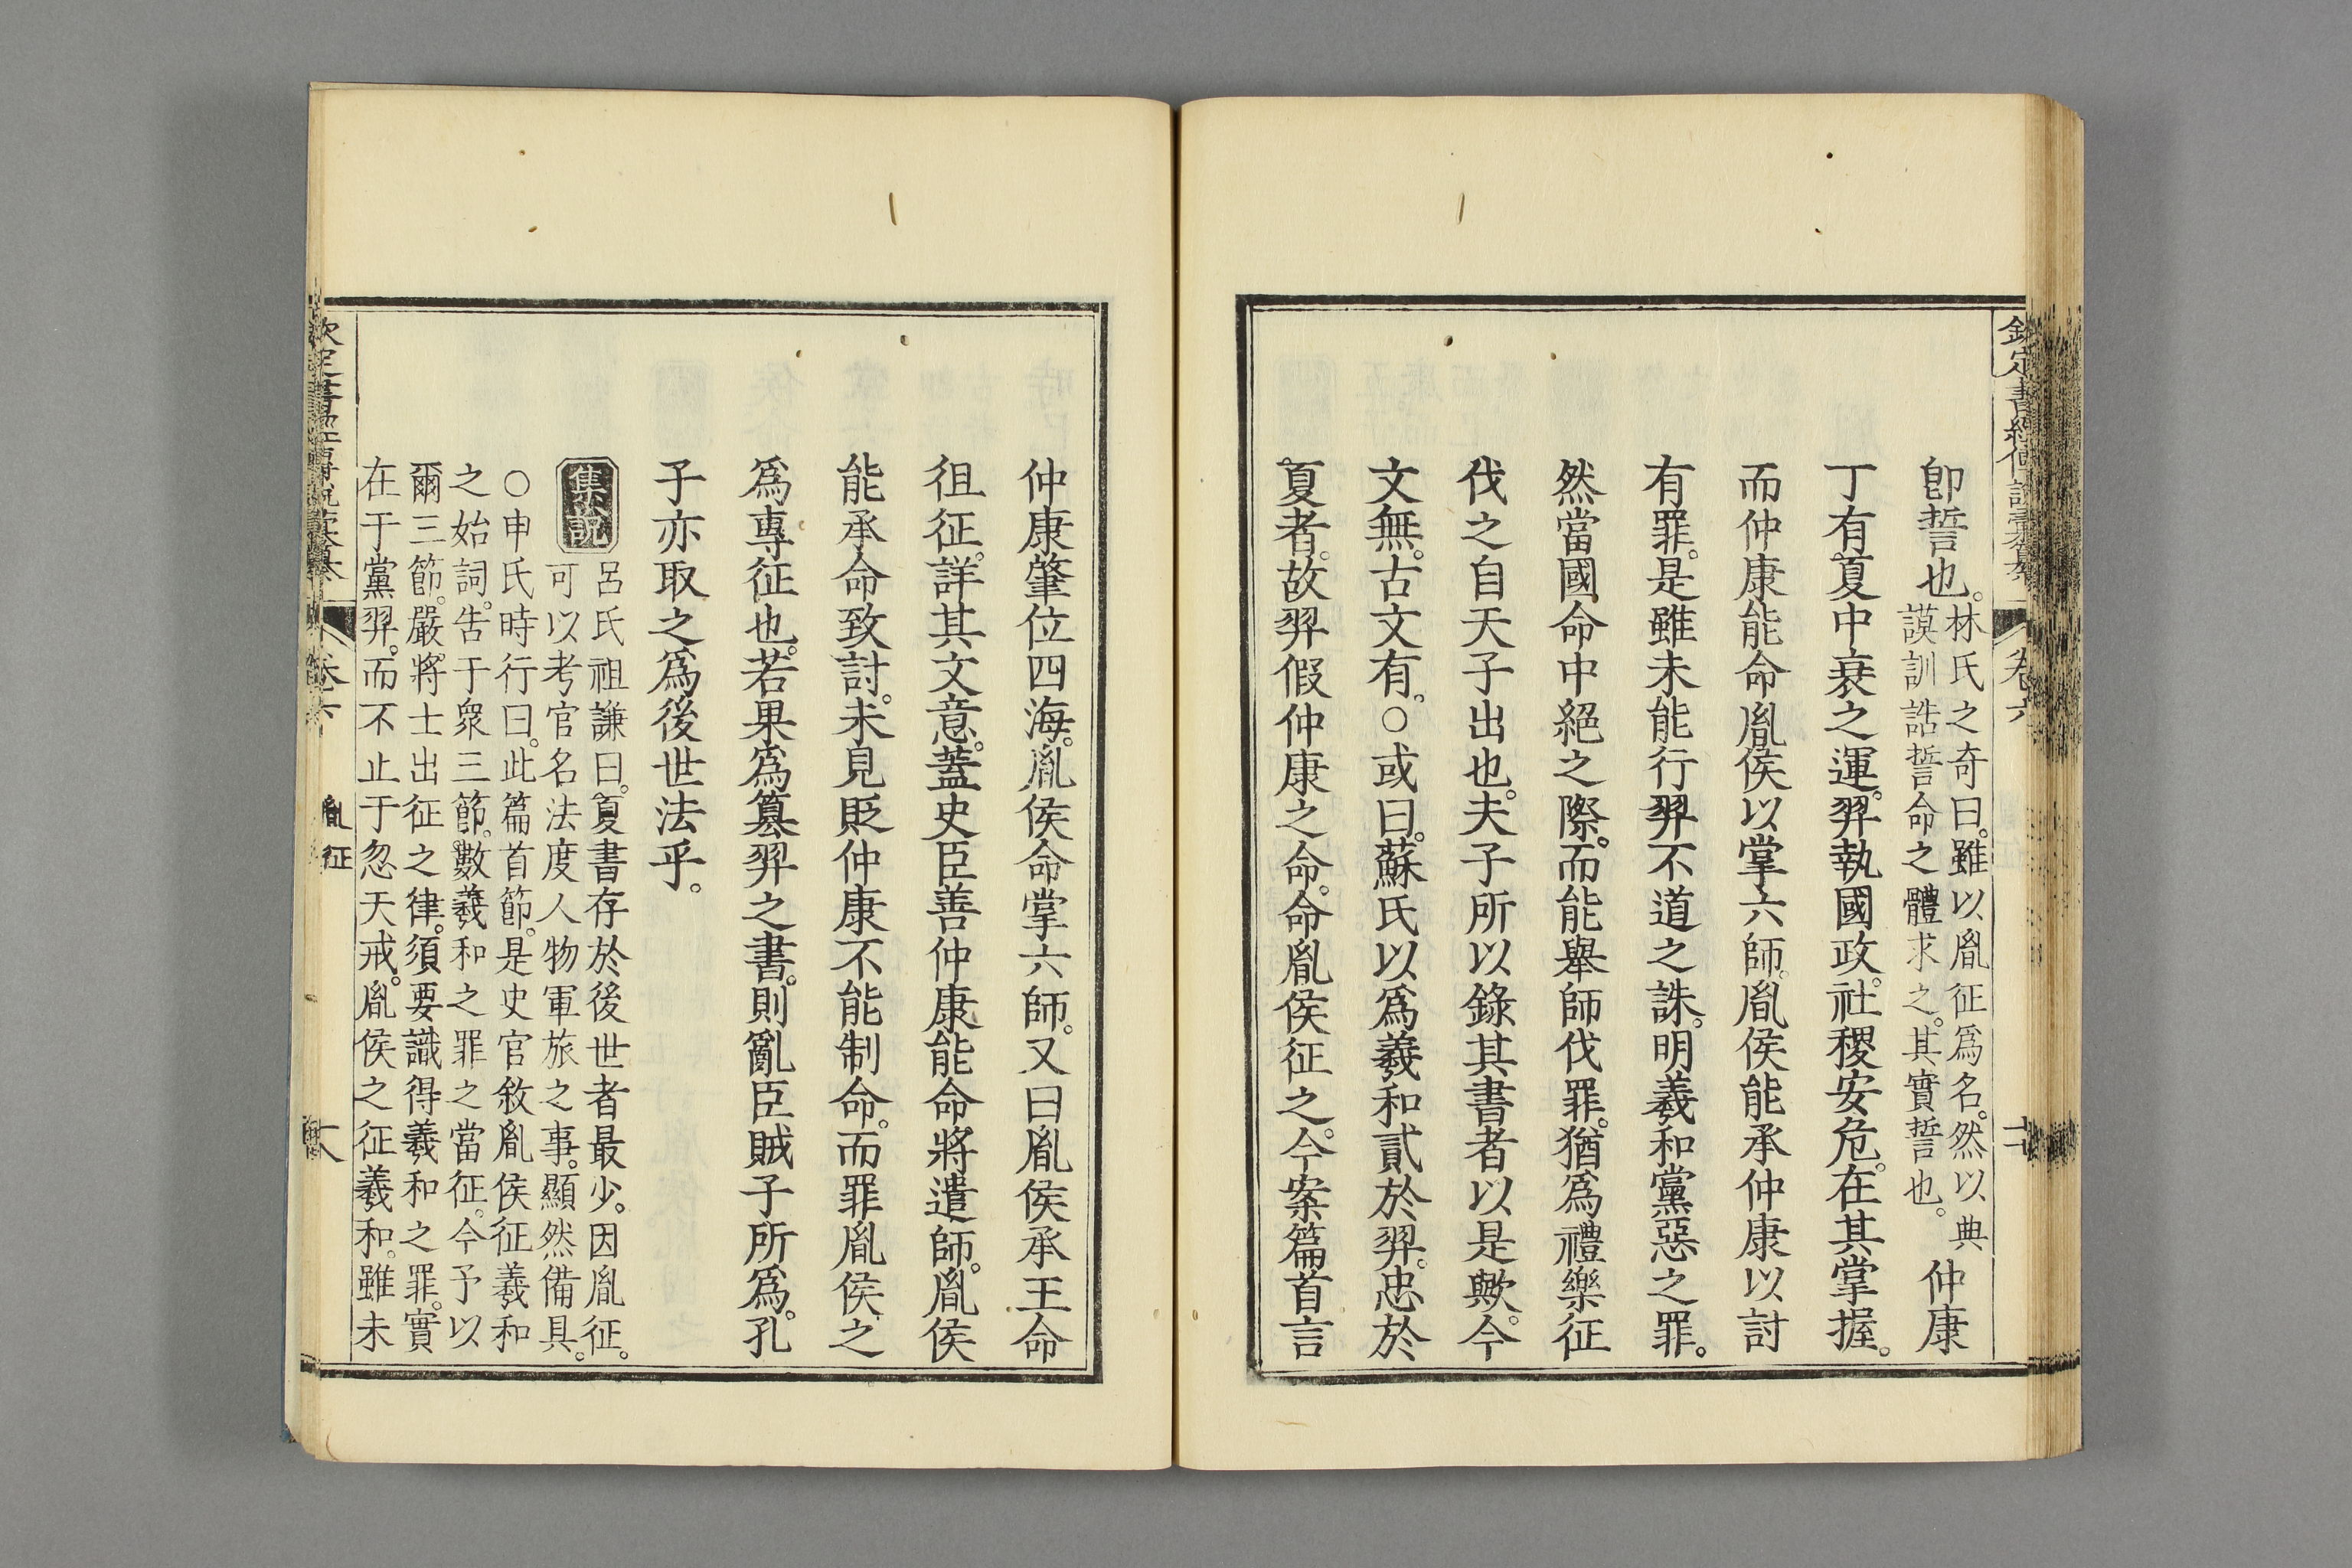 卽誓也。林氏之奇曰。雖以胤征爲名。然以典
謨訓誥誓命之體求之。其實誓也。仲康
丁有夏中衰之運。羿執國政。社稷安危。在其掌握。
而仲康能命胤侯以掌六師。胤侯能承仲康以討
有罪。是雖未能行羿不道之誅。明羲和黨惡之罪。
然當國命中絕之際。而能舉師伐罪。猶爲禮樂征
伐之自天子出也。夫子所以錄其書者以是歟。今
文無。古文有。○或曰。蘇氏以爲羲和貳於羿。忠於
夏者。故羿假仲康之命。命胤侯征之。今案篇首言
仲康肇位四海。胤侯命掌六師。又曰胤侯承王命
徂征。詳其文意。蓋史臣善仲康能命將遣師。胤侯
能承命致討。未見貶仲康不能制命。而罪胤侯之
爲專征也。若果爲簒羿之書。則亂臣賊子所爲。孔
子亦取之爲後世法乎。
集說
呂氏祖謙曰。夏書存於後世者最少。因胤征。
可以考官名法度人物軍旅之事。顯然備具。
○申氏時行曰。此篇首節。是史官敘胤侯征羲和
之始詞。吿于衆三節。數羲和之罪之當征。今予以
爾三節。嚴將士出征之律。須要識得羲和之罪。實
在于黨羿。而不止于忽天戒。胤侯之征羲和。雖未
卷六
胤征